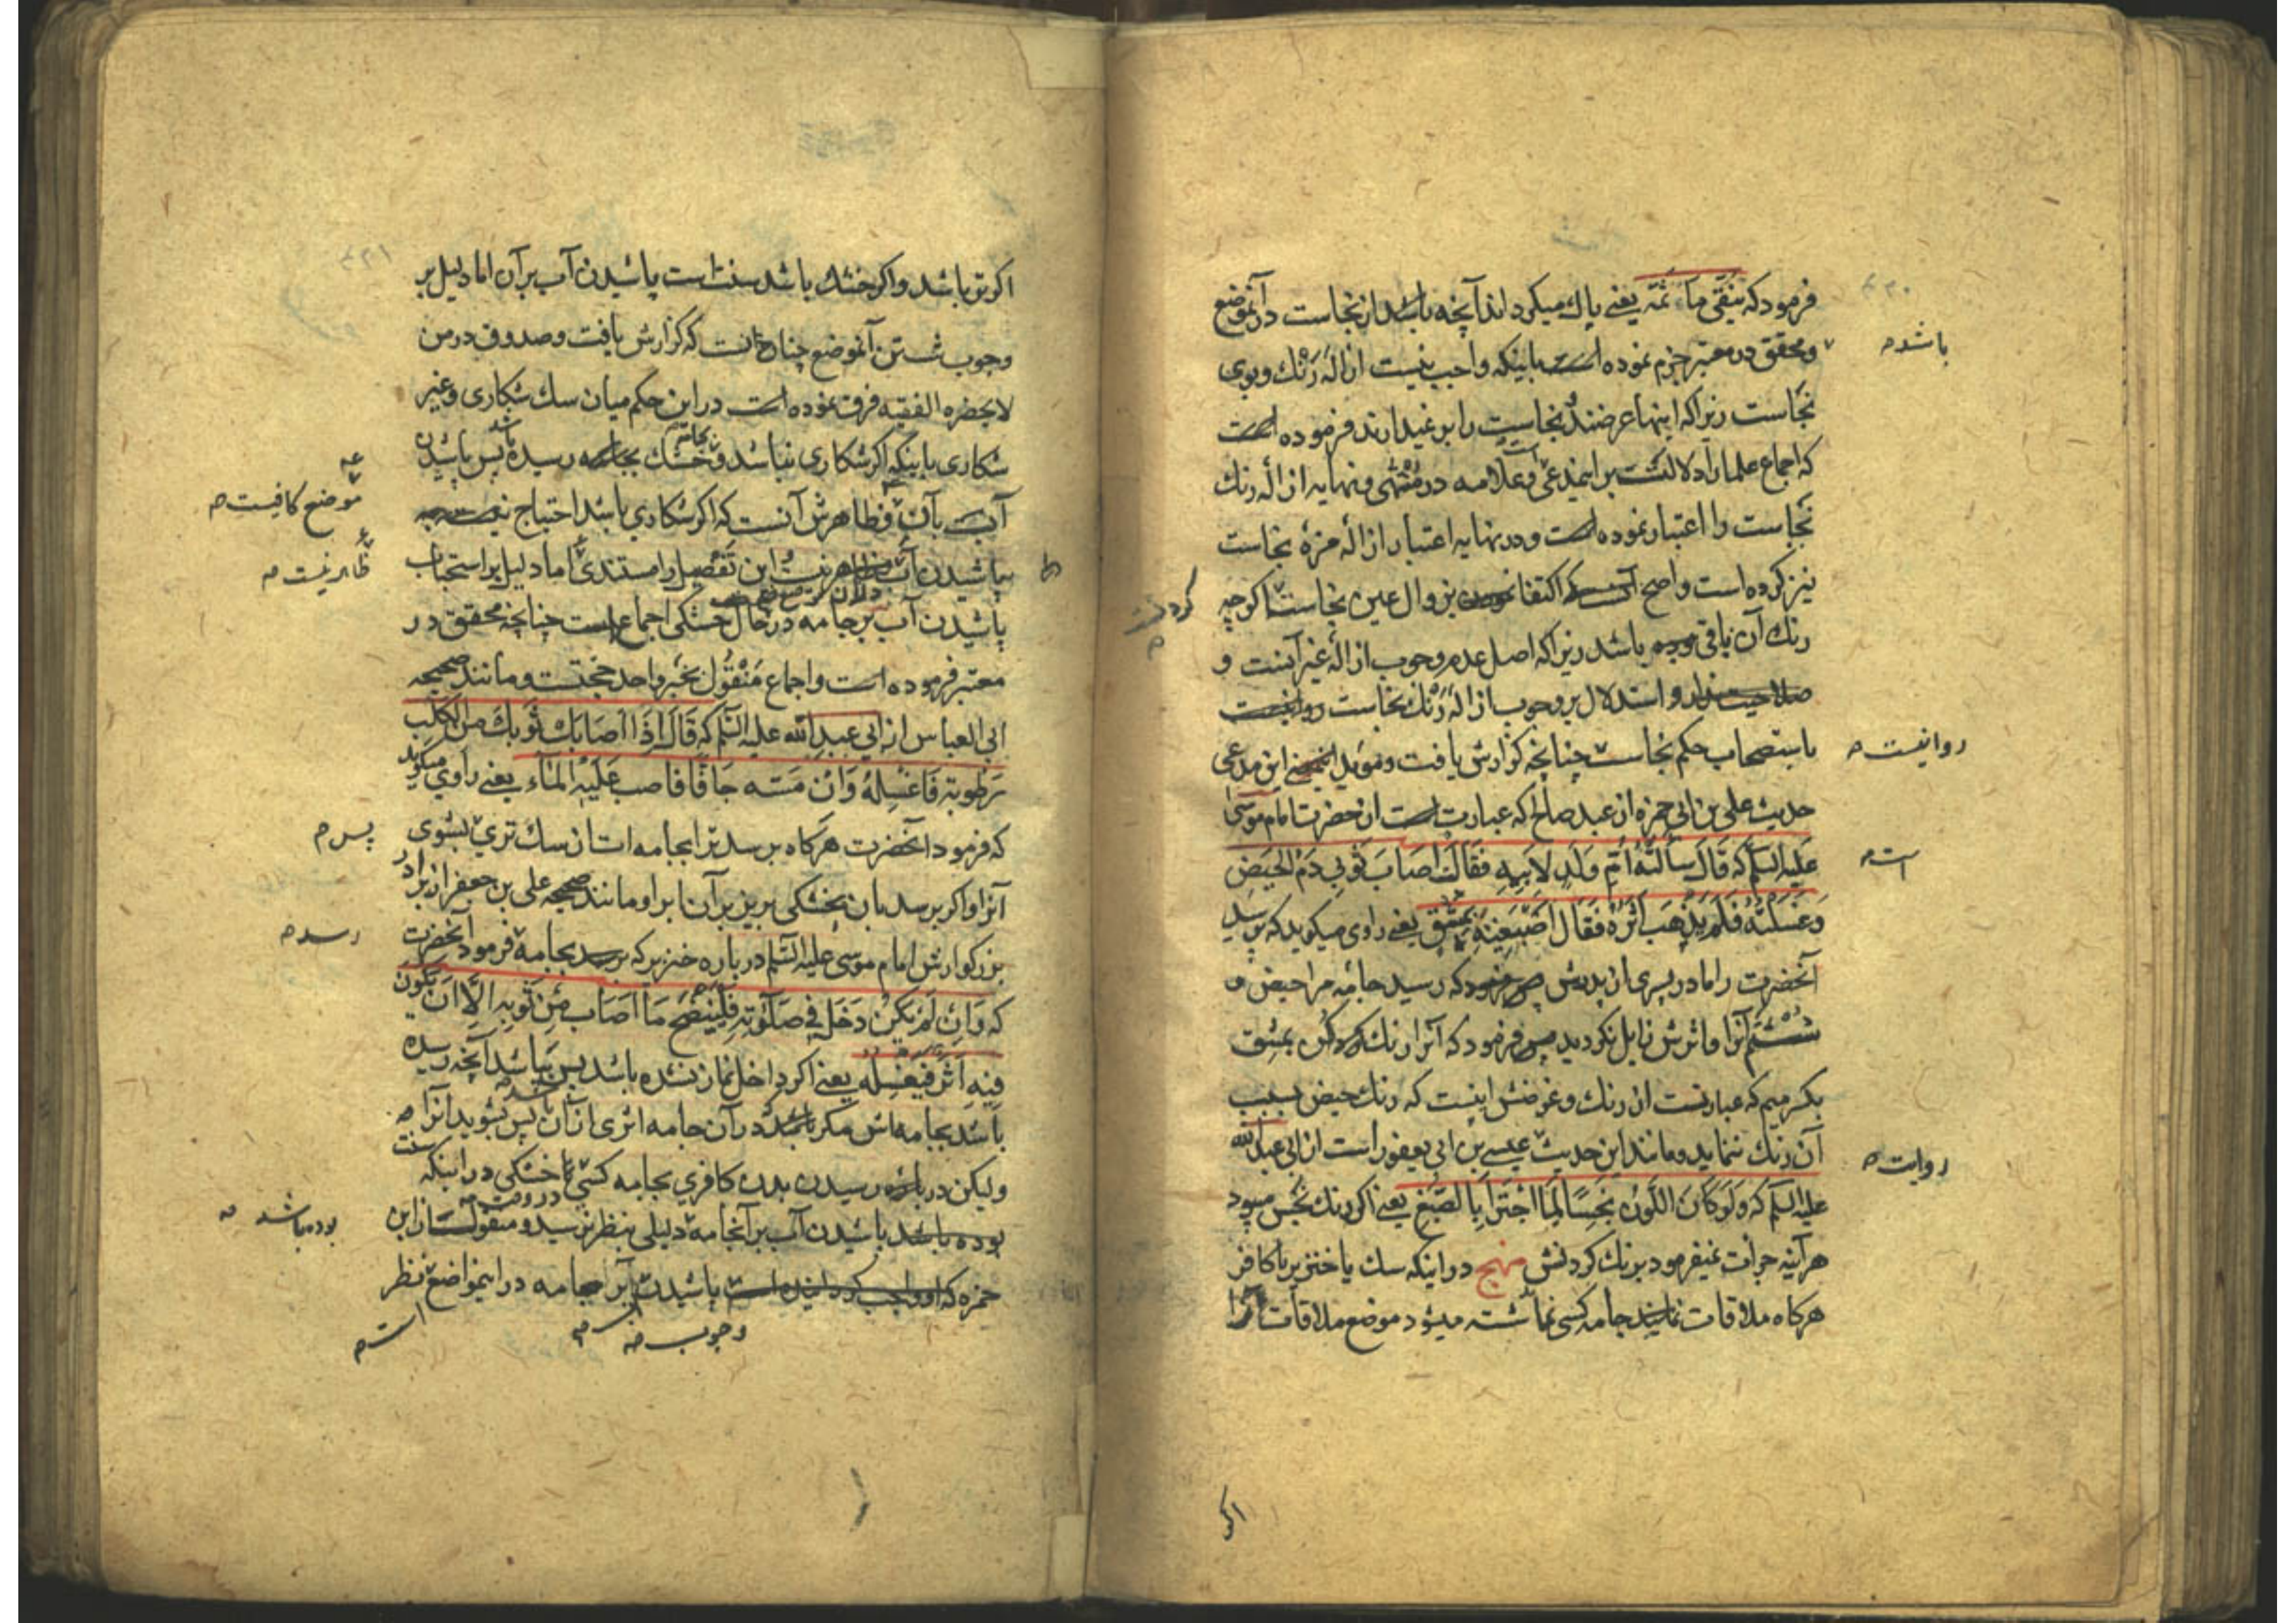 فرمود که ینقی ماء ثمّه یعنی پاك میکرداند آنچه باشد از نجاست در آنموضع
ومحقق در معتبر جزم نموده است باینکه واجب نیست ازالهٔ رَنْك وبوی
نجاست زیراکه اینها عرضند نجاست را بر نمیدارند فرموده است
که اجماع علما را دلالتست بر اینمدعی وعلامه در مُنْتَهی ونهایه ازالهٔ رنك
نجاست را اعتبار نموده است ودر نهایه اعتبار ازالهٔ مزهٔ نجاست
نیز کرده است واصح اکتفا بزوال عین نجاست اکرچه
رنك آن باقی باشد زیراکه اصل عدم وجوب ازالهٔ غیر آنست و
صلاحیت ندارد استدلال بر وجوب ازالهٔ رَنْك نجاست
باستصحاب حکم نجاست چنانچه کزارش یافت ومؤید این مدعی
حدیث علی بن ابی حمزه از عبد صالح که عبارت است از حضرت امام موسی
علیه السلم که قَالَ سألَتْهُ اُمّ وَلَدٍ لاَبیهِ فقالت اصَابَ ثَوبی دَمُ الحَیضِ
وَغَسَلتُهُ فَلَم یَذهَب اَثَرُهُ فَقَال اصْبَغِیهِ بِمِشْقٍ یعنی راوی میکوید که پرسید
آنحضرت را مادر پسری از پدرش که رسید جامهٔ مرا حیض و
شستم آنرا واثرش زایل نکردید پس فرمود که آنرا رنك کن بمشق
بکسر میم که عبارتست از رنك وغرضش اینست که رنك حیض بسبب
آن رنك ننماید ومانند این حدیث عیسی بن ابی یعفور است از ابی عبد الله
علیه السلم که وَلَو کَانَ اللَّونُ نَجِسًا لَمَا اجْتَزَأ بِالصَّبْغِ یعنی اکر رنك نَجِس میبود
هرآینه جرات نمیفرمود برنك کردنش منهج در اینکه سك یا خنزیر یا کافر
هرکاه ملاقات نمایند جامه کسی شسته میشود موضع ملاقات
باشد م
روانیست م
است م
روایت م
اکر
اکر تر باشد واکر خشك باشد سنت است پاشیدن آب بر آن اما دلیل بر
وجوب شستن آنموضع چنانست که کزارش یافت وصدوق در من
لایحضره الفقیه فرق نموده است در این حکم میان سك شکاری وغیر
شکاری باینکه اکر شکاری نباشد وخشك رسیده باشد پس پاشیدن
آب بآن وظاهرش آنست که اکر شکاری باشد احتیاج نیست
بپاشیدن آب این تَفْصیل را مستندی اما دلیل بر استحباب
پاشیدن آب بر جامه در حال خشکی اجماع است چنانچه محقق در
معتبر فرموده است واجماع مَنْقُول بخبر واحد حجتست ومانند صحیحه
ابی العباس از ابی عبد الله علیه السلم که قَالَ اِذَا اَصَابَكَ ثَوبَكَ مِن الکَلب
رَطُوبة فَاغسِلهُ وَاِن مَسّه جَافًا فاصبب عَلَیهِ الماء یعنی راوی میکوید
که فرمود آنحضرت هرکاه برسد ترا بجامه ات از سك تری بشوی
آنرا واکر برسد بآن بخشکی بریز بر آن آب را ومانند صحیحه علی بن جعفر از برادر
بزرکوارش امام موسی علیه السلم درباره خنزیر که بجامه فرمود آنحضرت
که وَاِن لَم یَکُن دَخَلَ فی صَلٰوتِهِ فَلیَنضَح مَا اَصَابَ مِن ثَوبِهِ اِلّا اَن یَکُون
فِیهِ اَثَر فَیَغسِله یعنی اکر داخل نماز نشده باشد پس بپاشد آنچه رسیده
باشد بجامه اش مکر باشد در آن جامه اثری از آن پس بشوید آنرا
ولیکن درباره رسیدن بدن کافری بجامه کسی با خشکی در اینکه سنت
پاشیدن آب بر آنجامه دلیلی بنظر نرسید ومنقولست از ابن
حمزه که پاشیدن آب بر جامه در اینمواضع نظر
موضع کافیست م
ظاهر نیست م
پس م
رسد م
بوده باشد م
وجوب م
است م